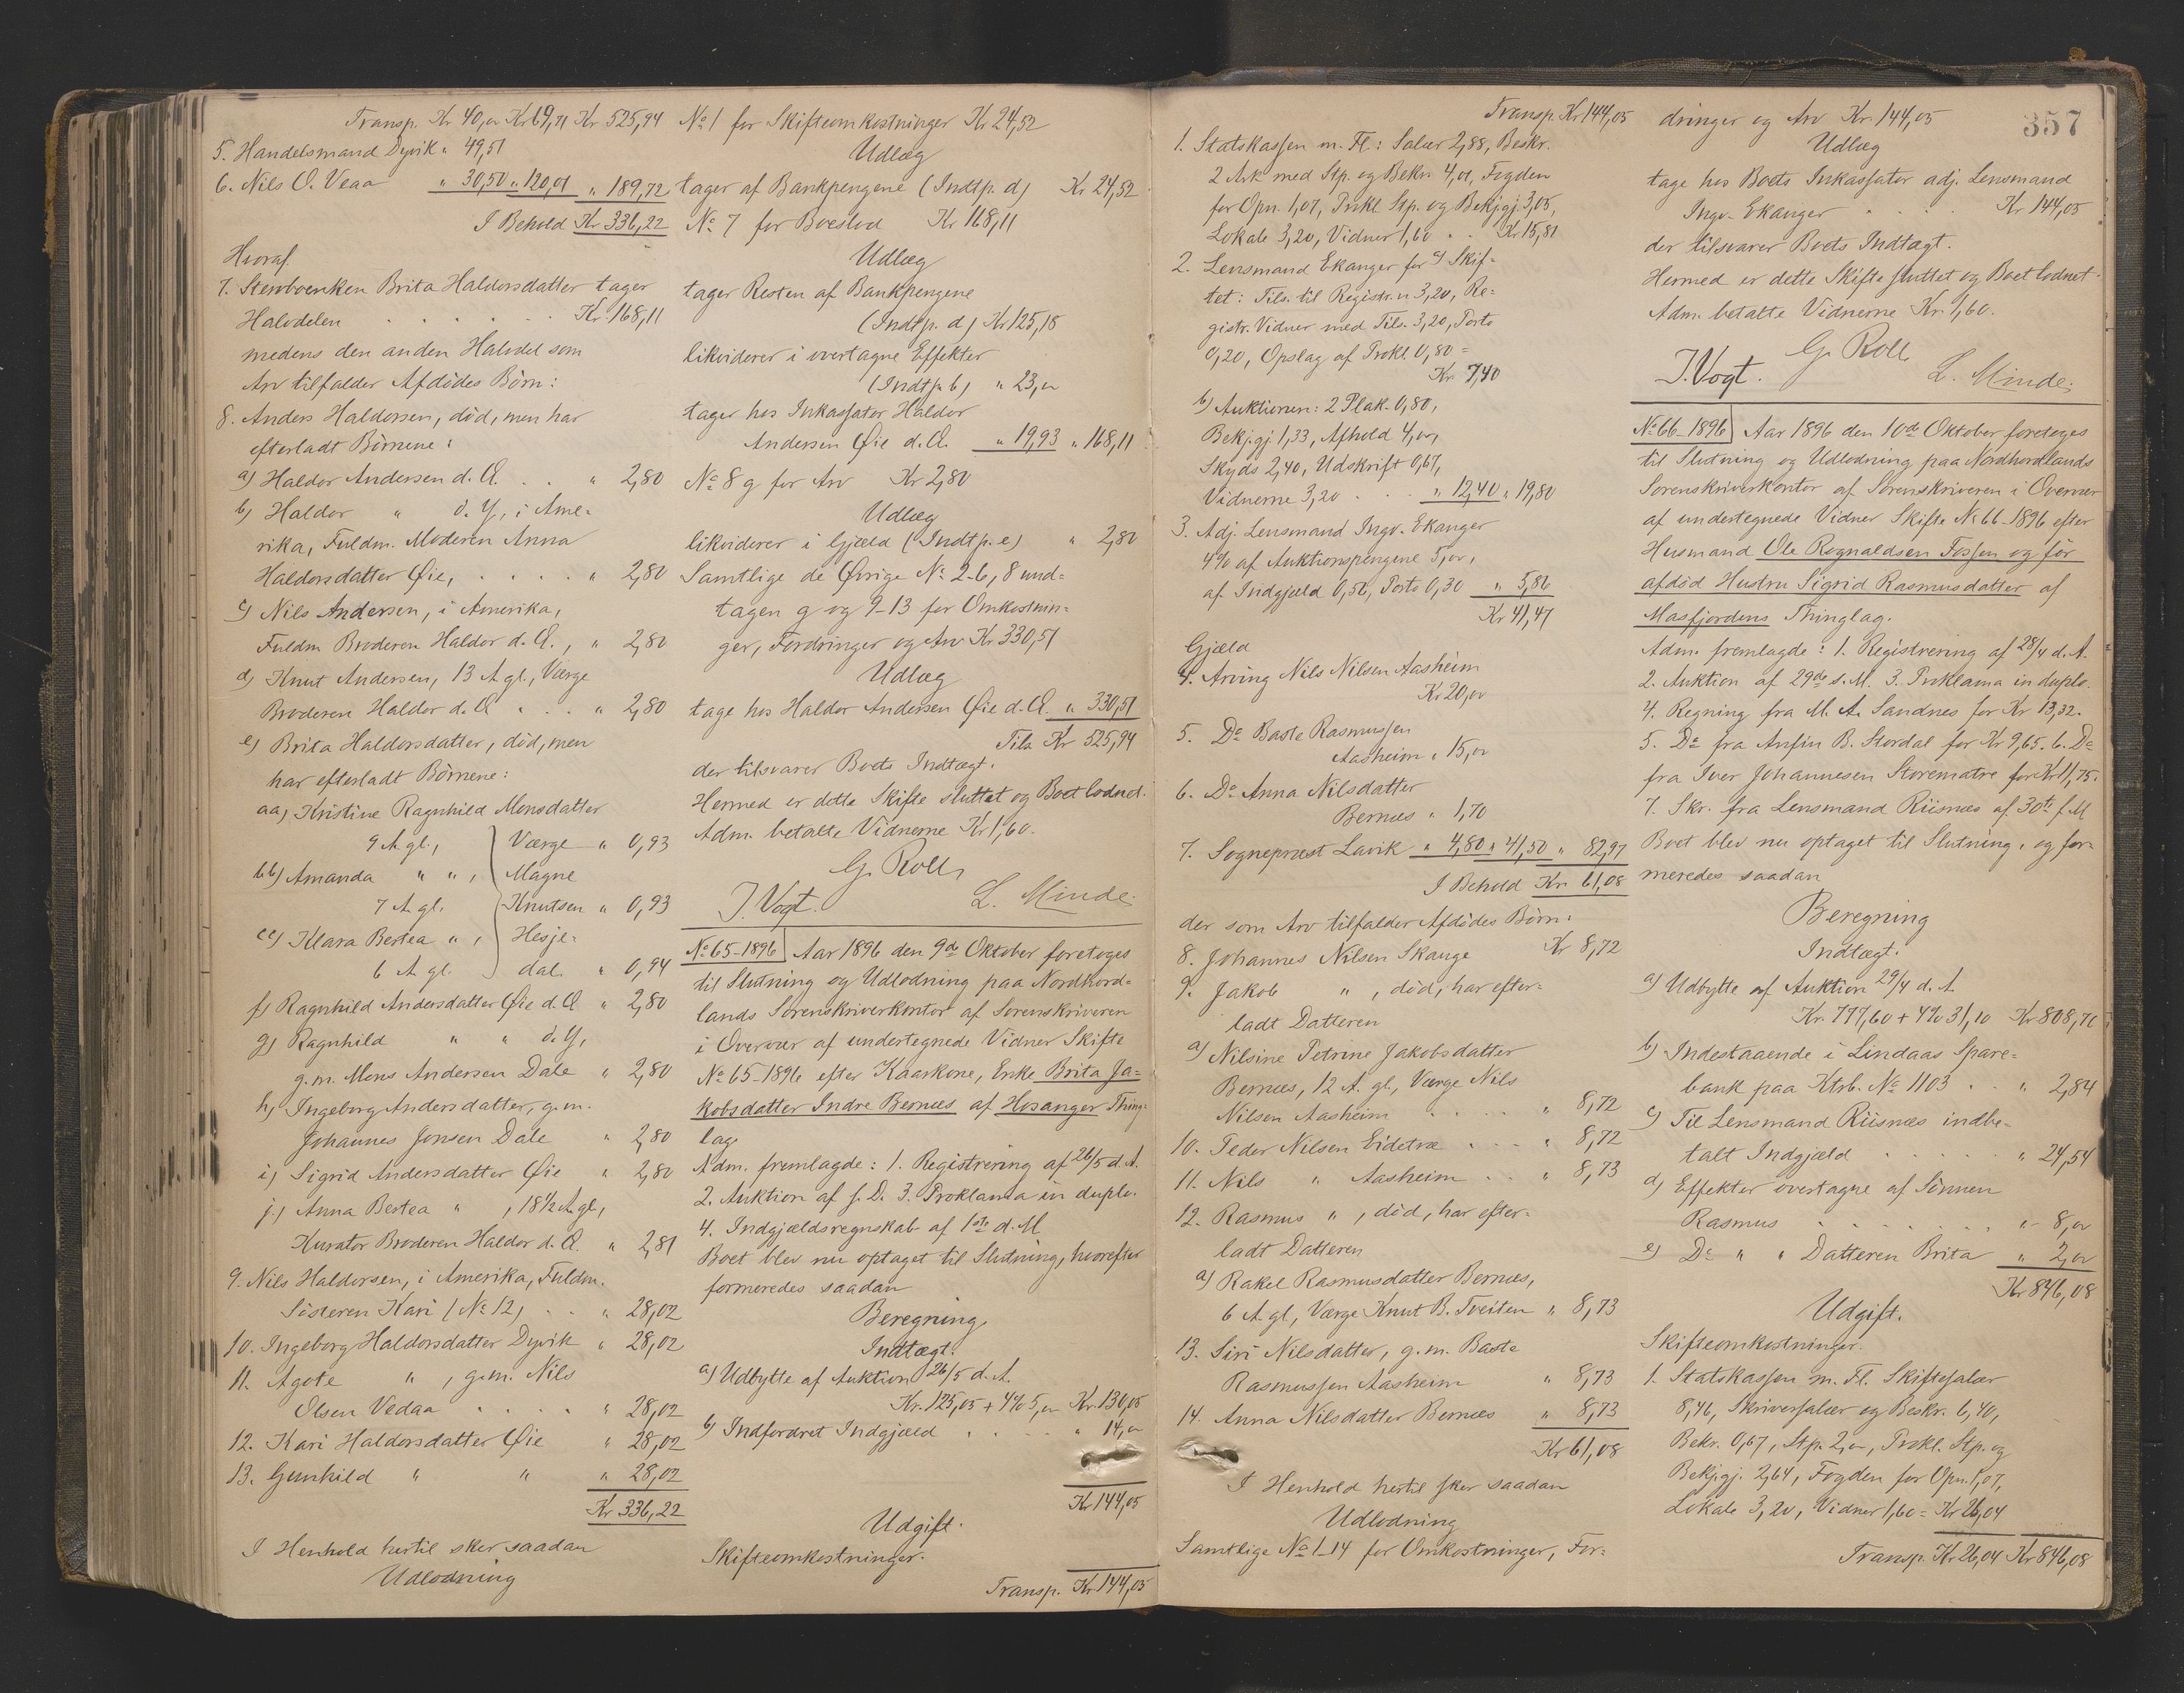 Transp. Kr 40,00 Kr 69,71 Kr 525,94
5. Handelsmand Dyvik " 49,51
6. Nils O. Veaa " 30,50 " 120,01 " 189,72
I Behold Kr 336,22
Hvoraf
7. Stervboenken Brita Haldorsdatter tager
Halvdelen . . . . . . Kr 168,11
medens den anden Halvdel som
Arv tilfalder Afdødes Børn:
8. Anders Haldorsen, død, men har
efterladt Børnene:
a) Haldor Andersen d. Æ. . . " 2,80
b) Haldor " d. Y., i Ame-
rika, Fuldm. Moderen Anna
Haldorsdatter Øie, . . . . . " 2,80
c) Nils Andersen, i Amerika,
Fuldm Broderen Haldor d. Æ., " 2,80
d) Knut Andersen, 13 A. gl., Værge
Broderen Haldor d. Æ . . . " 2,80
e) Brita Haldorsdatter, død, men
har efterladt Børnene:
aa) Kristine Ragnhild Monsdatter
9 A. gl., Værge " 0,93
bb) Amanda " ", Magne
7 A. gl. Knutsen " 0,93
cc) Klara Bertea ", Hesje-
6 A. gl. dal. " 0,94
f) Ragnhild Andersdatter Øie d. Æ " 2,80
g) Ragnhild " " d. Y.,
g. m. Mons Andersen Dale " 2,80
h) Ingeborg Andersdatter, g. m.
Johannes Jonsen Dale " 2,80
i) Sigrid Andersdatter Øie " 2,80
j.) Anna Bertea ", 18½ A. gl.,
Kurator Broderen Haldor d. Æ. " 2,81
9. Nils Haldorsen, i Amerika, Fuldm.
Søsteren Kari (No 12) . . " 28,02
10. Ingeborg Haldorsdatter Dyvik " 28,02
11. Agote ", g. m. Nils
Olsen Vedaa . . . . " 28,02
12. Kari Haldorsdatter Øie " 28,02
13. Gunhild " " " 28,02
Kr 336,22
I Henhold hertil sker saadan
Udlodning
No 1 for Skifteomkostninger Kr 24,52
Udlæg
tager af Bankpengene (Indt p. d) Kr 24,52
No 7 for Boeslod Kr 168,11
Udlæg
tager Resten af Bankpengene
(Indt p. d) Kr 125,18
likviderer i overtagne Effekter
(Indt p. b) " 23,00
tager hos Inkassator Haldor
Andersen Øie d. Æ. " 19,93 " 168,11
No 8 g for Arv Kr 2,80
Udlæg
likviderer i Gjæld (Indt p. e) " 2,80
Samtlige de Øvrige No 2-6, 8 und-
tagen g og 9-13 for Omkostnin-
ger, Fordringer og Arv Kr 330,51
Udlæg
tage hos Haldor Andersen Øie d. Æ. " 330,51
Tils. Kr 525,94
der tilsvarer Boets Indtægt.
Hermed er dette Skifte sluttet og Boet lodnet.
Adm. betalte Vidnerne Kr 1,60.
G. Roll
J. Vogt. L. Minde.
No 65-1896 Aar 1896 den 9de Oktober foretoges
til Slutning og Udlodning paa Nordhord-
lands Sorenskriverkontor af Sorenskriveren
i Overvær af undertegnede Vidner Skifte
No 65-1896 efter Kaarkone, Enke Brita Ja-
kobsdatter Indre Bernæs af Hosanger Thing-
lag.
Adm. fremlagde: 1. Registrering af 26/5 d. A.
2. Auktion af s. D. 3. Proklama in duplo.
4. Indgjældsregnskab af 1ste d. M
Boet blev nu optaget til Slutning, hvorefter
formeredes saadan
Beregning
Indtægt.
a) Udbytte af Auktion 26/5 d. A.
Kr. 125,05 + 4% 5,00 Kr. 130,05
b) Indfordret Indgjæld . . . . " 14,00
Kr 144,05
Udgift.
Skifteomkostninger.
Transp. Kr 144,05
Transp Kr 144,05
1. Statskassen m. Fl.: Salær 2,88, Beskr.
2 Ark med Stp. og Bekr. 4,01, Fogden
for Opn. 1,07, Prokl. Stp. og Bekjgj. 3,05,
Lokale 3,20, Vidner 1,60 . . Kr 15,81
2. Lensmand Ekanger for a) Skif-
tet: Tils. til Registr.n 3,20, Re-
gistr. Vidner med Tils. 3,20, Porto
0,20, Opslag af Prokl 0,80 =
Kr. 7,40
b) Auktionen: 2 Plak. 0,80,
Bekj.gj. 1,33, Afhold 4,00,
Skyds 2,40, Udskrift 0,67,
Vidnerne 3,20 . . . " 12,40 " 19,80
3. Adj. Lensmand Ingv. Ekanger
4% af Auktionspengene 5,00,
af Indgjæld 0,56, Porto 0,30 " 5,86
Kr 41,47
Gjæld
4. Arving Nils Nilsen Aasheim
Kr 20,00
5. Do Baste Rasmussen
Aasheim " 15,00
6. Do Anna Nilsdatter
Bernæs " 1,70
7. Sogneprest Lavik " 4,80 " 41,50 " 82,97
I Behold Kr 61,08
der som Arv tilfalder Afdødes Børn:
8. Johannes Nilsen Skauge Kr 8,72
9. Jakob ", død, har efter-
ladt Datteren
a) Nilsine Petrine Jakobsdatter
Bernæs, 12 A. gl., Værge Nils
Nilsen Aasheim . . . . . " 8,72
10. Peder Nilsen Eidetræ . . . " 8,72
11. Nils " Aasheim . . " 8,73
12. Rasmus ", død, har efter-
ladt Datteren
a) Rakel Rasmusdatter Bernæs,
6 A. gl., Værge Knut B. Tveiten " 8,73
13. Siri Nilsdatter, g. m. Baste
Rasmussen Aasheim " 8,73
14. Anna Nilsdatter Bernæs " 8,73
Kr 61,08
I Henhold hertil sker saadan
Udlodning
Samtlige No 1-14 for Omkostninger, For-
357
dringer og Arv Kr. 144,05
Udlæg
tage hos Boets Inkassator adj. Lensmand
Ingv. Ekanger . . . . Kr 144,05
der tilsvarer Boets Indtægt.
Hermed er dette Skifte sluttet og Boet lodnet.
Adm. betalte Vidnerne Kr. 1,60.
G. Roll
J. Vogt. L. Minde.
No 66-1896 Aar 1896 den 10de Oktober foretoges
til Slutning og Udlodning paa Nordhordlands
Sorenskriverkontor af Sorenskriveren i Overvær
af undertegnede Vidner Skifte No 66-1896 efter
Husmand Ole Rognaldsen Fossen og før
afdød Hustru Sigrid Rasmusdatter af
Masfjordens Thinglag.
Adm. fremlagde: 1. Registrering af 28/4 d. A.
2. Auktion af 29de s. M. 3. Proklama in duplo.
4. Regning fra M. A. Sandnes for Kr 13,32.
5. Do fra Anfin B. Stordal for Kr 9,65. 6. Do
fra Iver Johannesen Storematre for Kr 11,75.
7. Skr. fra Lensmand Riisnæs af 30te f. M
Boet blev nu optaget til Slutning, og for-
meredes saadan
Beregning
Indtægt.
a) Udbytte af Auktion 29/4 d. A.
Kr. 777,60 + 4% 31,10 Kr 808,70
b) Indestaaende i Lindaas Spare-
bank paa Ktrb. No 1103 . . " 2,84
c) Til Lensmand Riisnæs indbe-
talt Indgjæld . . . . . " 24,54
d) Effekter overtagne af Sønnen
Rasmus . . . . . . . " 8,00
e) Do " " Datteren Brita " 2,00
Kr 846,08
Udgift.
Skifteomkostninger.
1. Statskassen m. Fl. Skiftesalær
8,46, Skriversalær og Beskr. 6,40,
Bekr. 0,67, Stp. 2,00, Prokl. Stp. og
Bekj.gj. 2,64, Fogden for Opn. 1,07,
Lokale 3,20, Vidner 1,60 = Kr 26,04
Transp. Kr 26,04 Kr 846,08